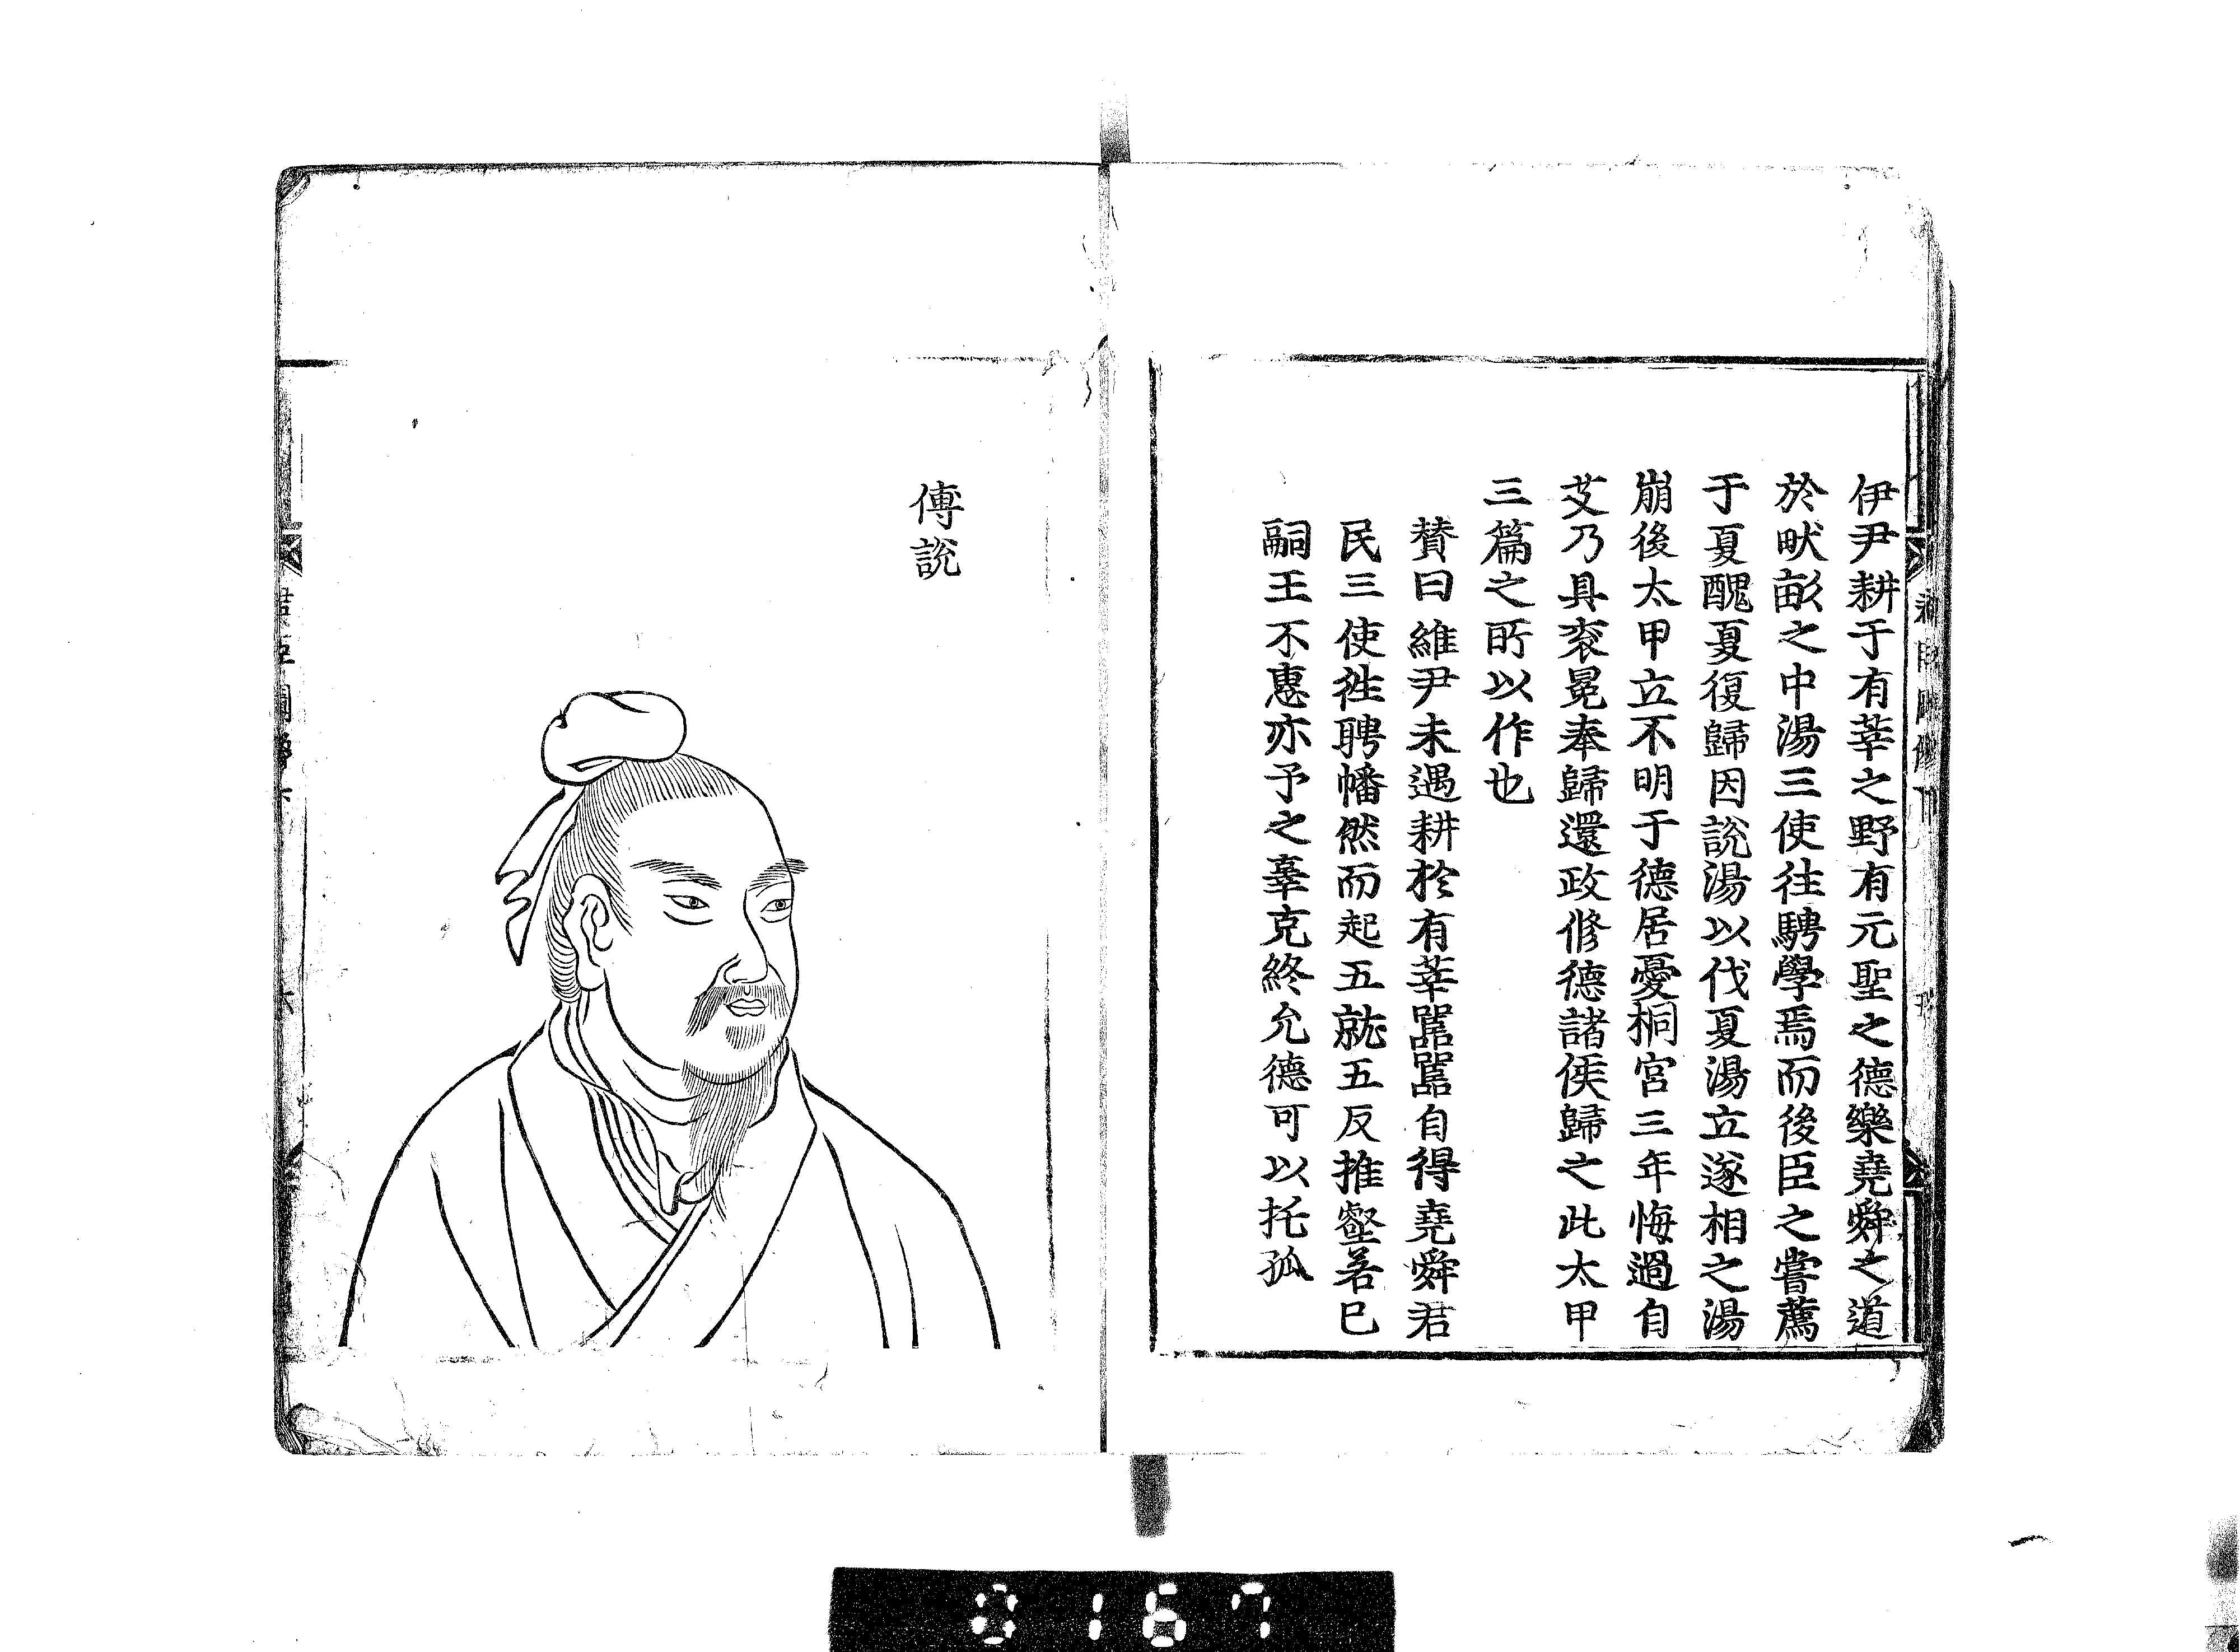 伊尹耕于有莘之野有元聖之德樂堯舜之道
於畎畝之中湯三使往騁學焉而後臣之嘗薦
于夏醜夏復歸因說湯以伐夏湯立遂相之湯
崩後太甲立不明于德居憂桐宮三年悔過自
艾乃具衮冕奉歸還政修德諸侯歸之此太甲
三篇之所以作也
賛曰維尹未遇耕於有莘嚚嚚自得堯舜君
民三使徃聘幡然而起五就五反推壑若已
嗣王不惠亦予之辜克終允德可以托孤
傅說
0167